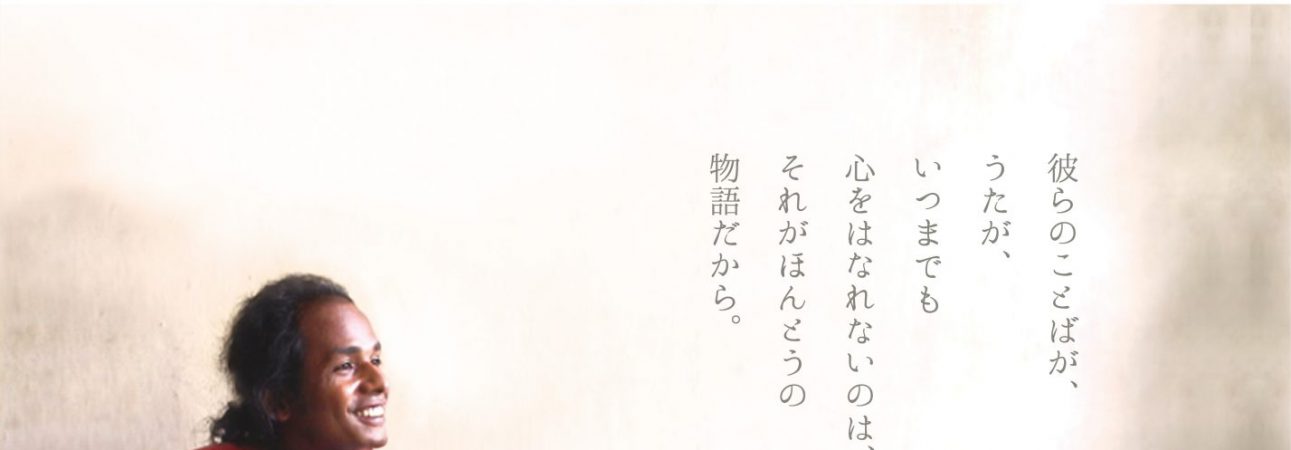 彼らのことばが、
うたが、
いつまでも
心をはなれないのは、
それがほんとうの
物語だから。